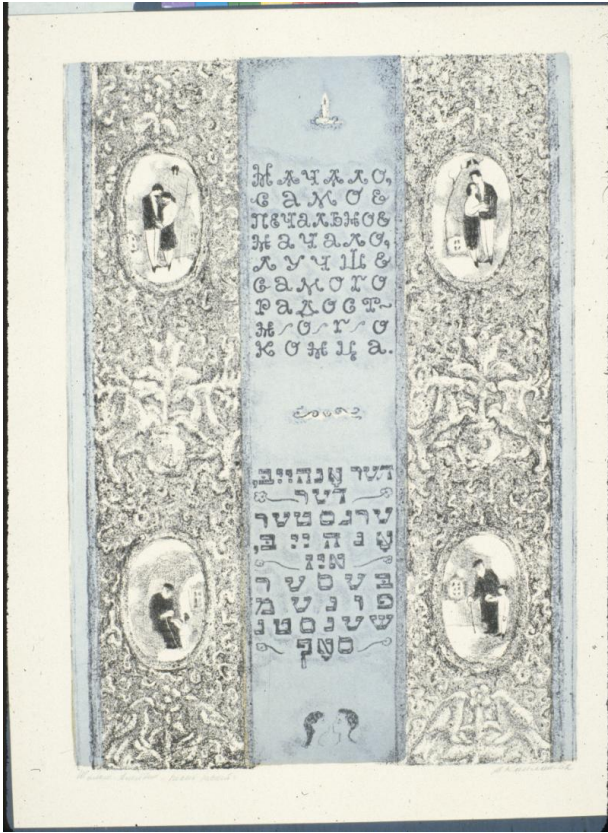 Начало,
самое
печальное
начало,
лучше
самого
радост-
ного
конца.
דער אָנהייב,
דער
ערגסטער
אָנהייב,
איז
בעסער
פונעמ
שענסטנ
סאָף